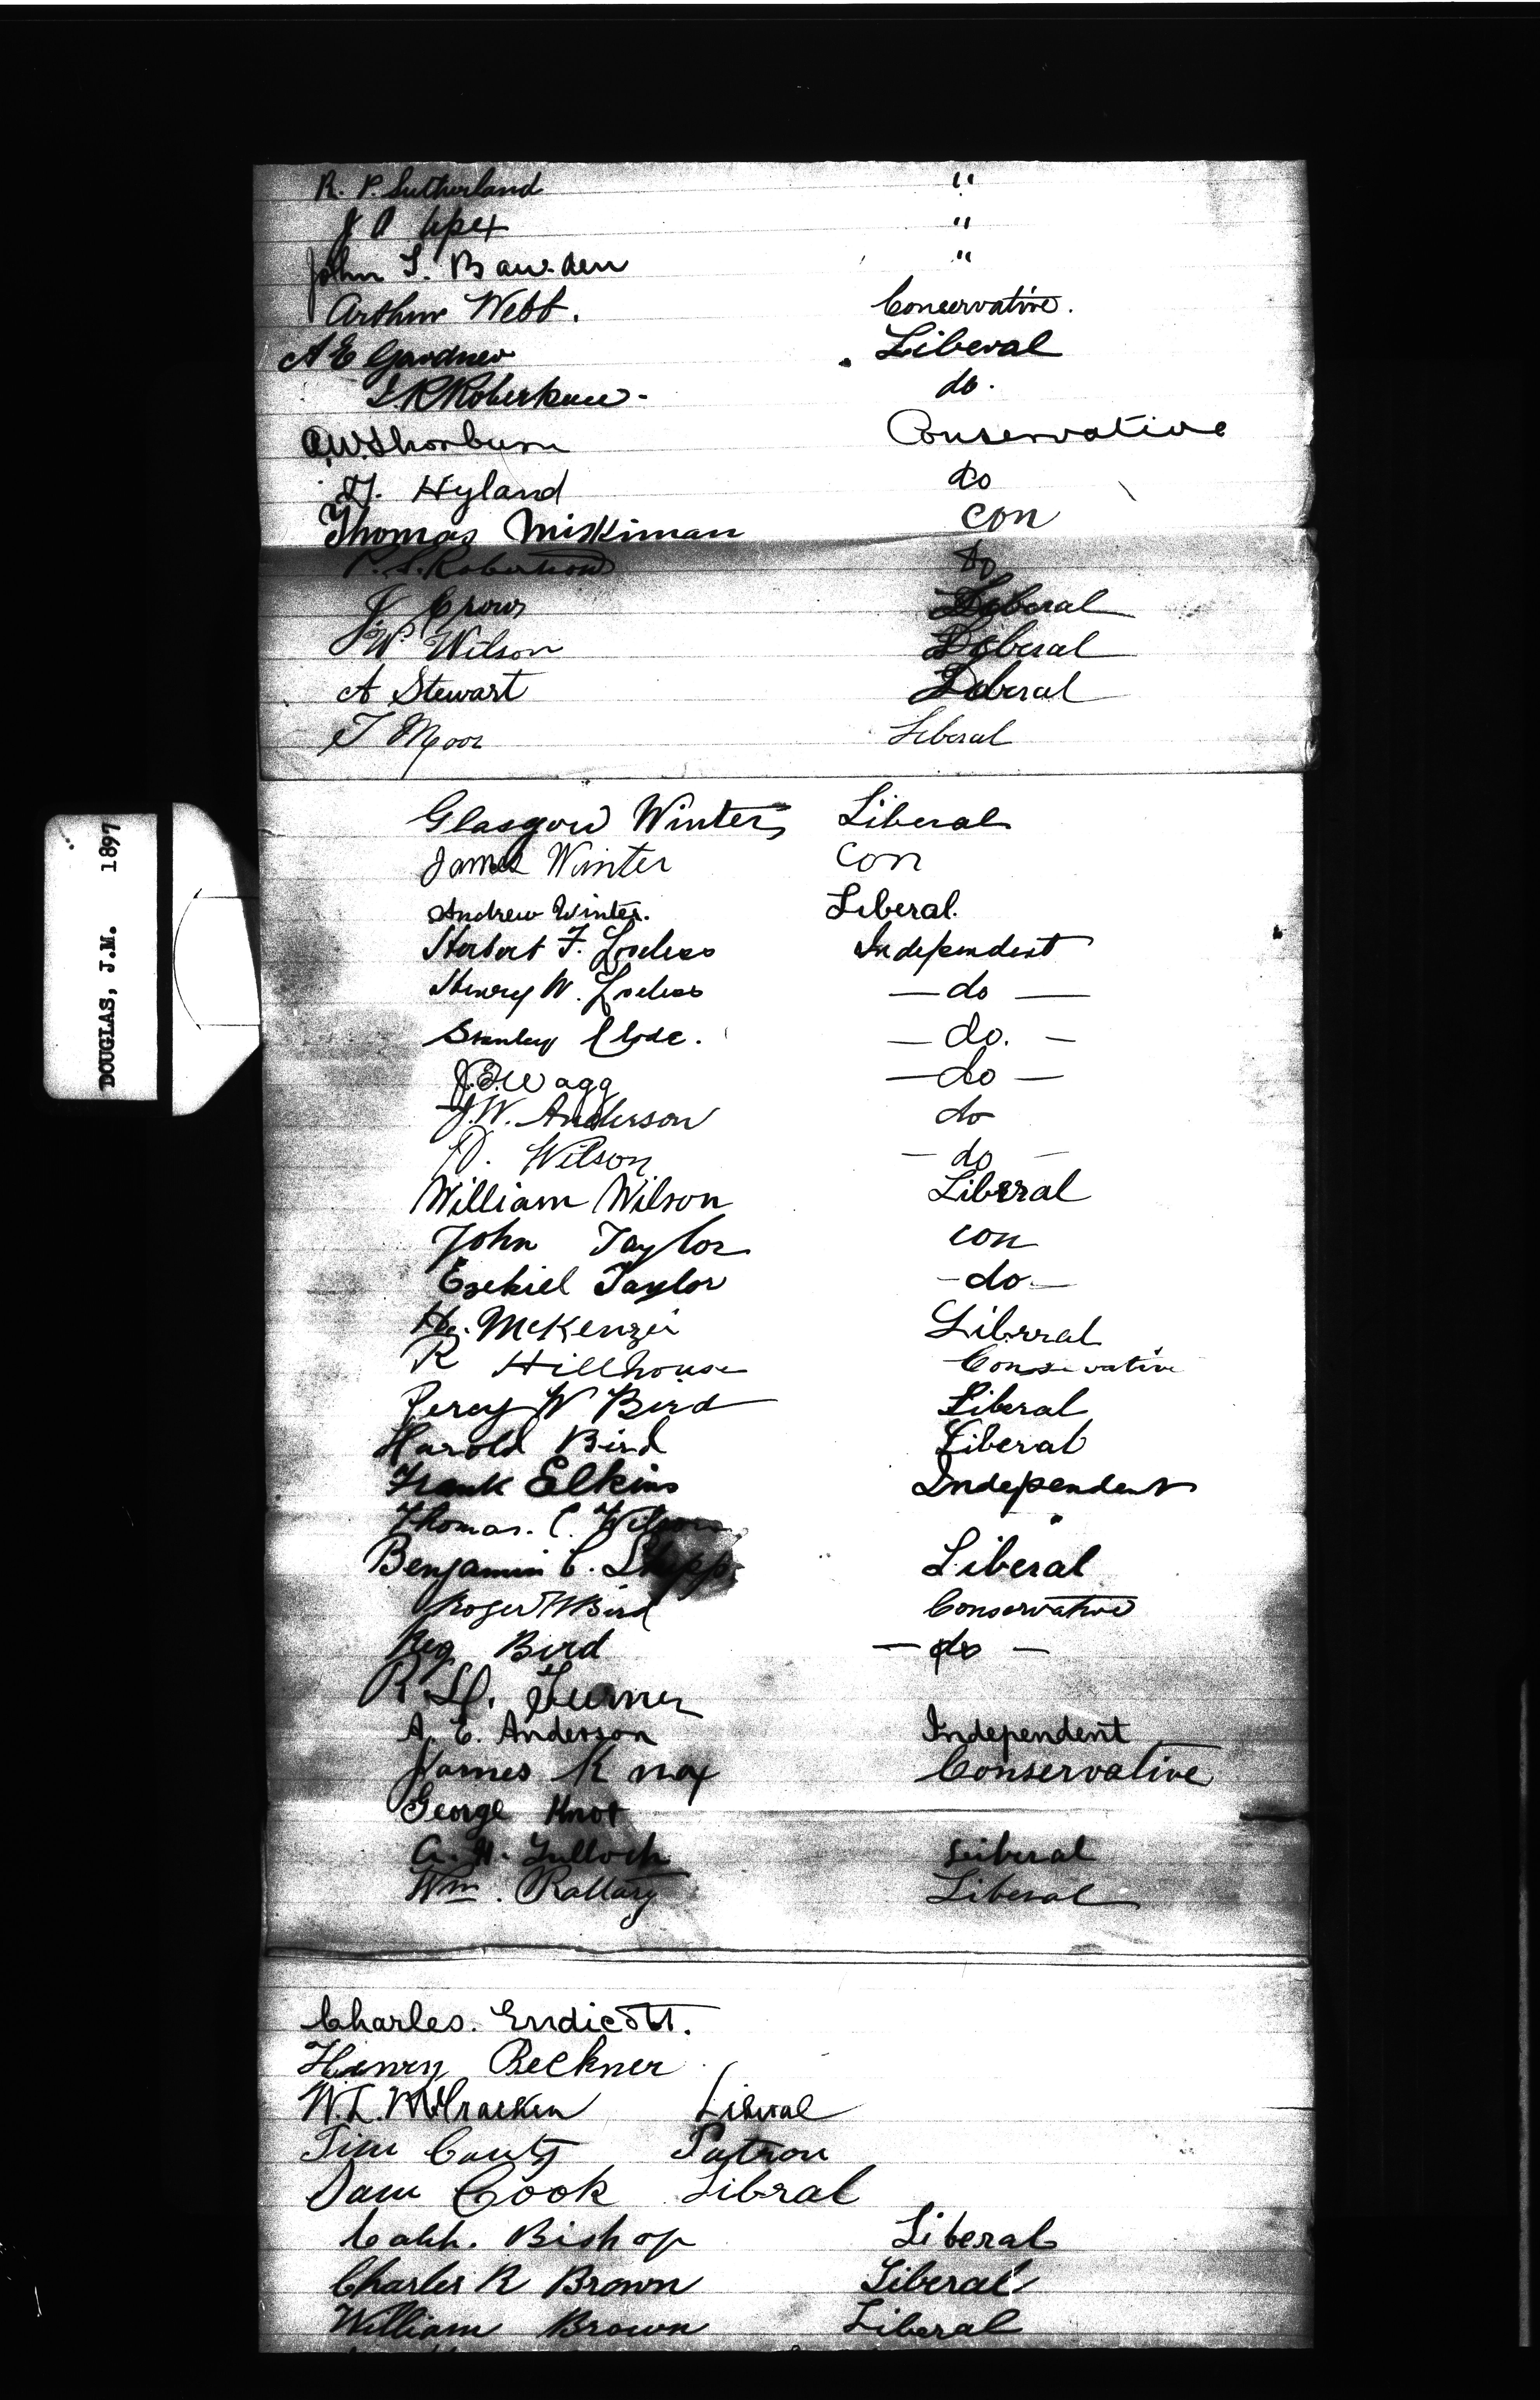 R. P. Sutherland "
J A "
John S. Bawden "
Arthur Webb. Conservative.
A E Gardner Liberal
do.
A.W. Thorburn Conservative
Hyland do
Thomas Miskiman con
P. S. Robertson do
J Crows Liberal
J. W. Wilson Liberal
A Stewart Liberal
T Moor Liberal
Glasgow Winter Liberal
James Winter con
Andrew Winter. Liberal.
Herbert F. Loveless Independent
Henry W. Loveless — do —
Stanley Clode. — do. —
J.E. Wagg — do —
J.W. Anderson do
D. Wilson — do —
William Wilson Liberal
John Taylor con
Ezekiel Taylor - do —
McKenzie Librral
R Hillhouse Conservative
Percy W Bird Liberal
Harold Bird Liberal
Frank Elkins Independent
Thomas. C. Wilson
Benjamin C. Liberal
Roger W Bird Conservative
Reg Bird — do —
R Turner
A. E. Anderson Independent
James Knox Conservative
George Knot
A. H. Tulloch Liberal
Wm. Rattary Liberal
DOUGLAS, J.M. 1897
Charles. Endicott.
Henry Beckner
W.L. McCracken Liberal
Tim Patron
Sam Cook Libral
Bishop Liberal
Charles R Brown Liberal
William Brown Liberal